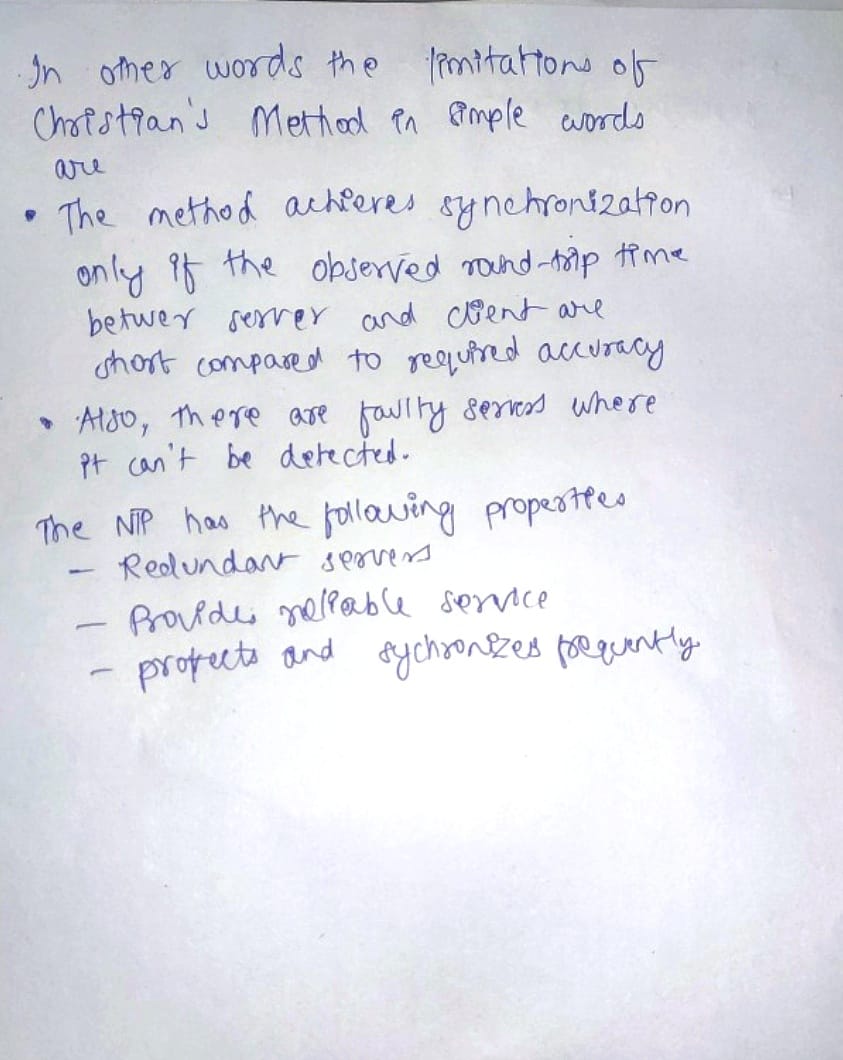 In other words the limitations of
Christian's Method in simple words
are
• The method achieves synchronization
only if the observed round-trip time
betwer server and client are
short compared to required accuracy
• Also, there are faulty servers where
it can't be detected.
The NTP has the following properties
– Redundant servers
– Provides reliable service
– protects and sychronizes frequently